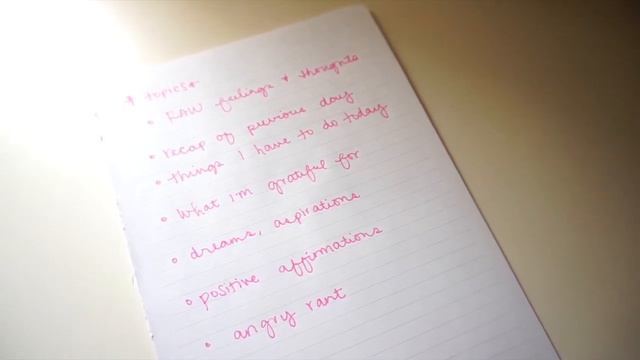 * topics *
• RAW feelings & thoughts
• recap of previous day
• things I have to do today
• What I'm grateful for
• dreams, aspirations
• positive affirmations
• angry rant